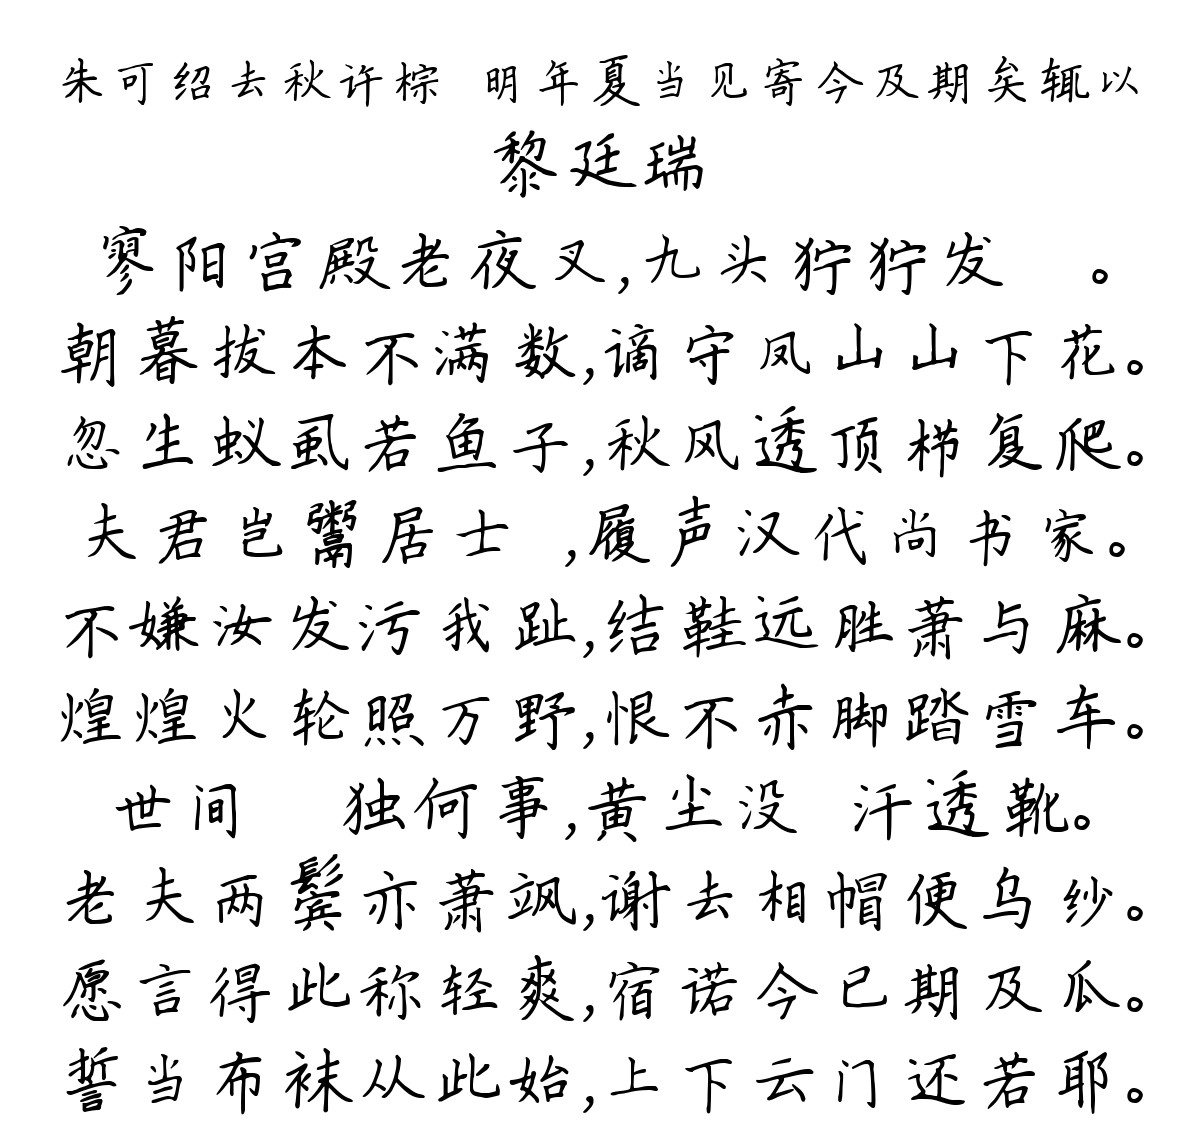 朱可绍去秋许棕 明年夏当见寄今及期矣辄以
黎廷瑞
寥阳宫殿老夜叉,九头狞狞发 。
朝暮拔本不满数,谪守凤山山下花。
忽生蚁虱若鱼子,秋风透顶栉复爬。
夫君岂鬻居士 ,履声汉代尚书家。
不嫌汝发污我趾,结鞋远胜萧与麻。
煌煌火轮照万野,恨不赤脚踏雪车。
世间 独何事,黄尘没 汗透靴。
老夫两鬓亦萧飒,谢去相帽便乌纱。
愿言得此称轻爽,宿诺今已期及瓜。
誓当布袜从此始,上下云门还若耶。